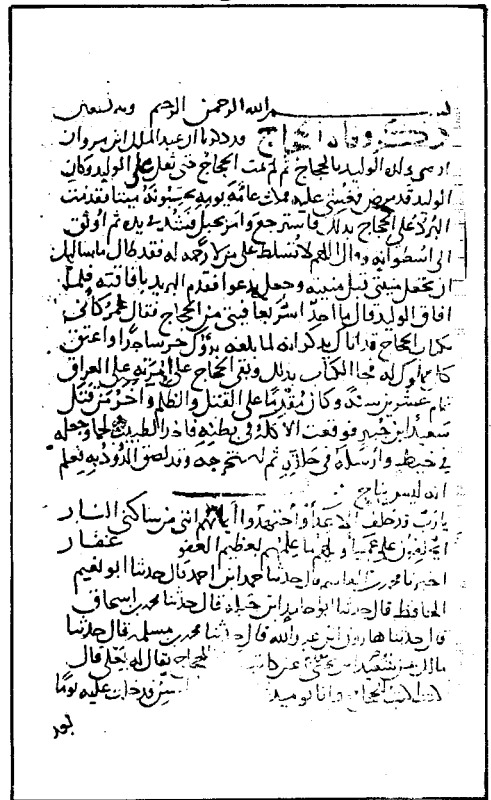 بسم الله الرحمن الرحيم وبه نستعين
ذكر وفاة الحجاج قد ذكرنا ان عبد الملك ابن مروان
اوصى ولده الوليد بالحجاج ثم لم يمت الحجاج حتى ثقل على الوليد وكان
الوليد قد مرض فغشي عليه فمكث عامة يومه يحسبونه ميتا فقدمت
البرد على الحجاج بذلك فاسترجع وامر بحبل فشد في يده ثم اوثق
الى اسطوانة وقال اللهم لا تسلط علي من لا رحمة له فقد طال ما سالتك
ان تجعل منيتي قبل منيته وجعل يدعوا فقدم البريد بافاقته فلما
افاق الوليد قال ما احد اشد بعافيتي من الحجاج فقال عمر كاني
بكتاب الحجاج قد اتاك يذكر انه لما بلغه برؤك خر ساجدا واعتق
كل مملوك له فجا الكتاب بذلك وبقي الحجاج على امرته على العراق
تمام عشرين سنة وكان مقدما على القتل والظلم واخر من قتل
سعيد ابن جبير فوقعت الاكلة في بطنه فاخذ الطبيب لحما وجعله
في خيط وارسله في حلقه ثم استخرجه وقد لصق الدود به فعلم
انه ليس بناج
يا رب قد حلف الاعداء واجتهدوا ايمانهم انني من ساكني النار
ايحلفون على عمياء ويحهم ما علمهم بعظيم العفو غفار
اخبرنا محمد قال حدثنا حمد ابن احمد قال حدثنا ابو نعيم
الحافظ قال حدثنا ابو حامد ابن جبلة قال حدثنا محمد بن اسحاق
قال حدثنا هارون ابن عبد الله قال حدثنا محمد بن مسلمة قال حدثنا
مالك بن سعيد عن كاتب الحجاج يقال له يعلى قال
كنت اكتب للحجاج وانا يوميذ السن فدخلت عليه يوما
بعد